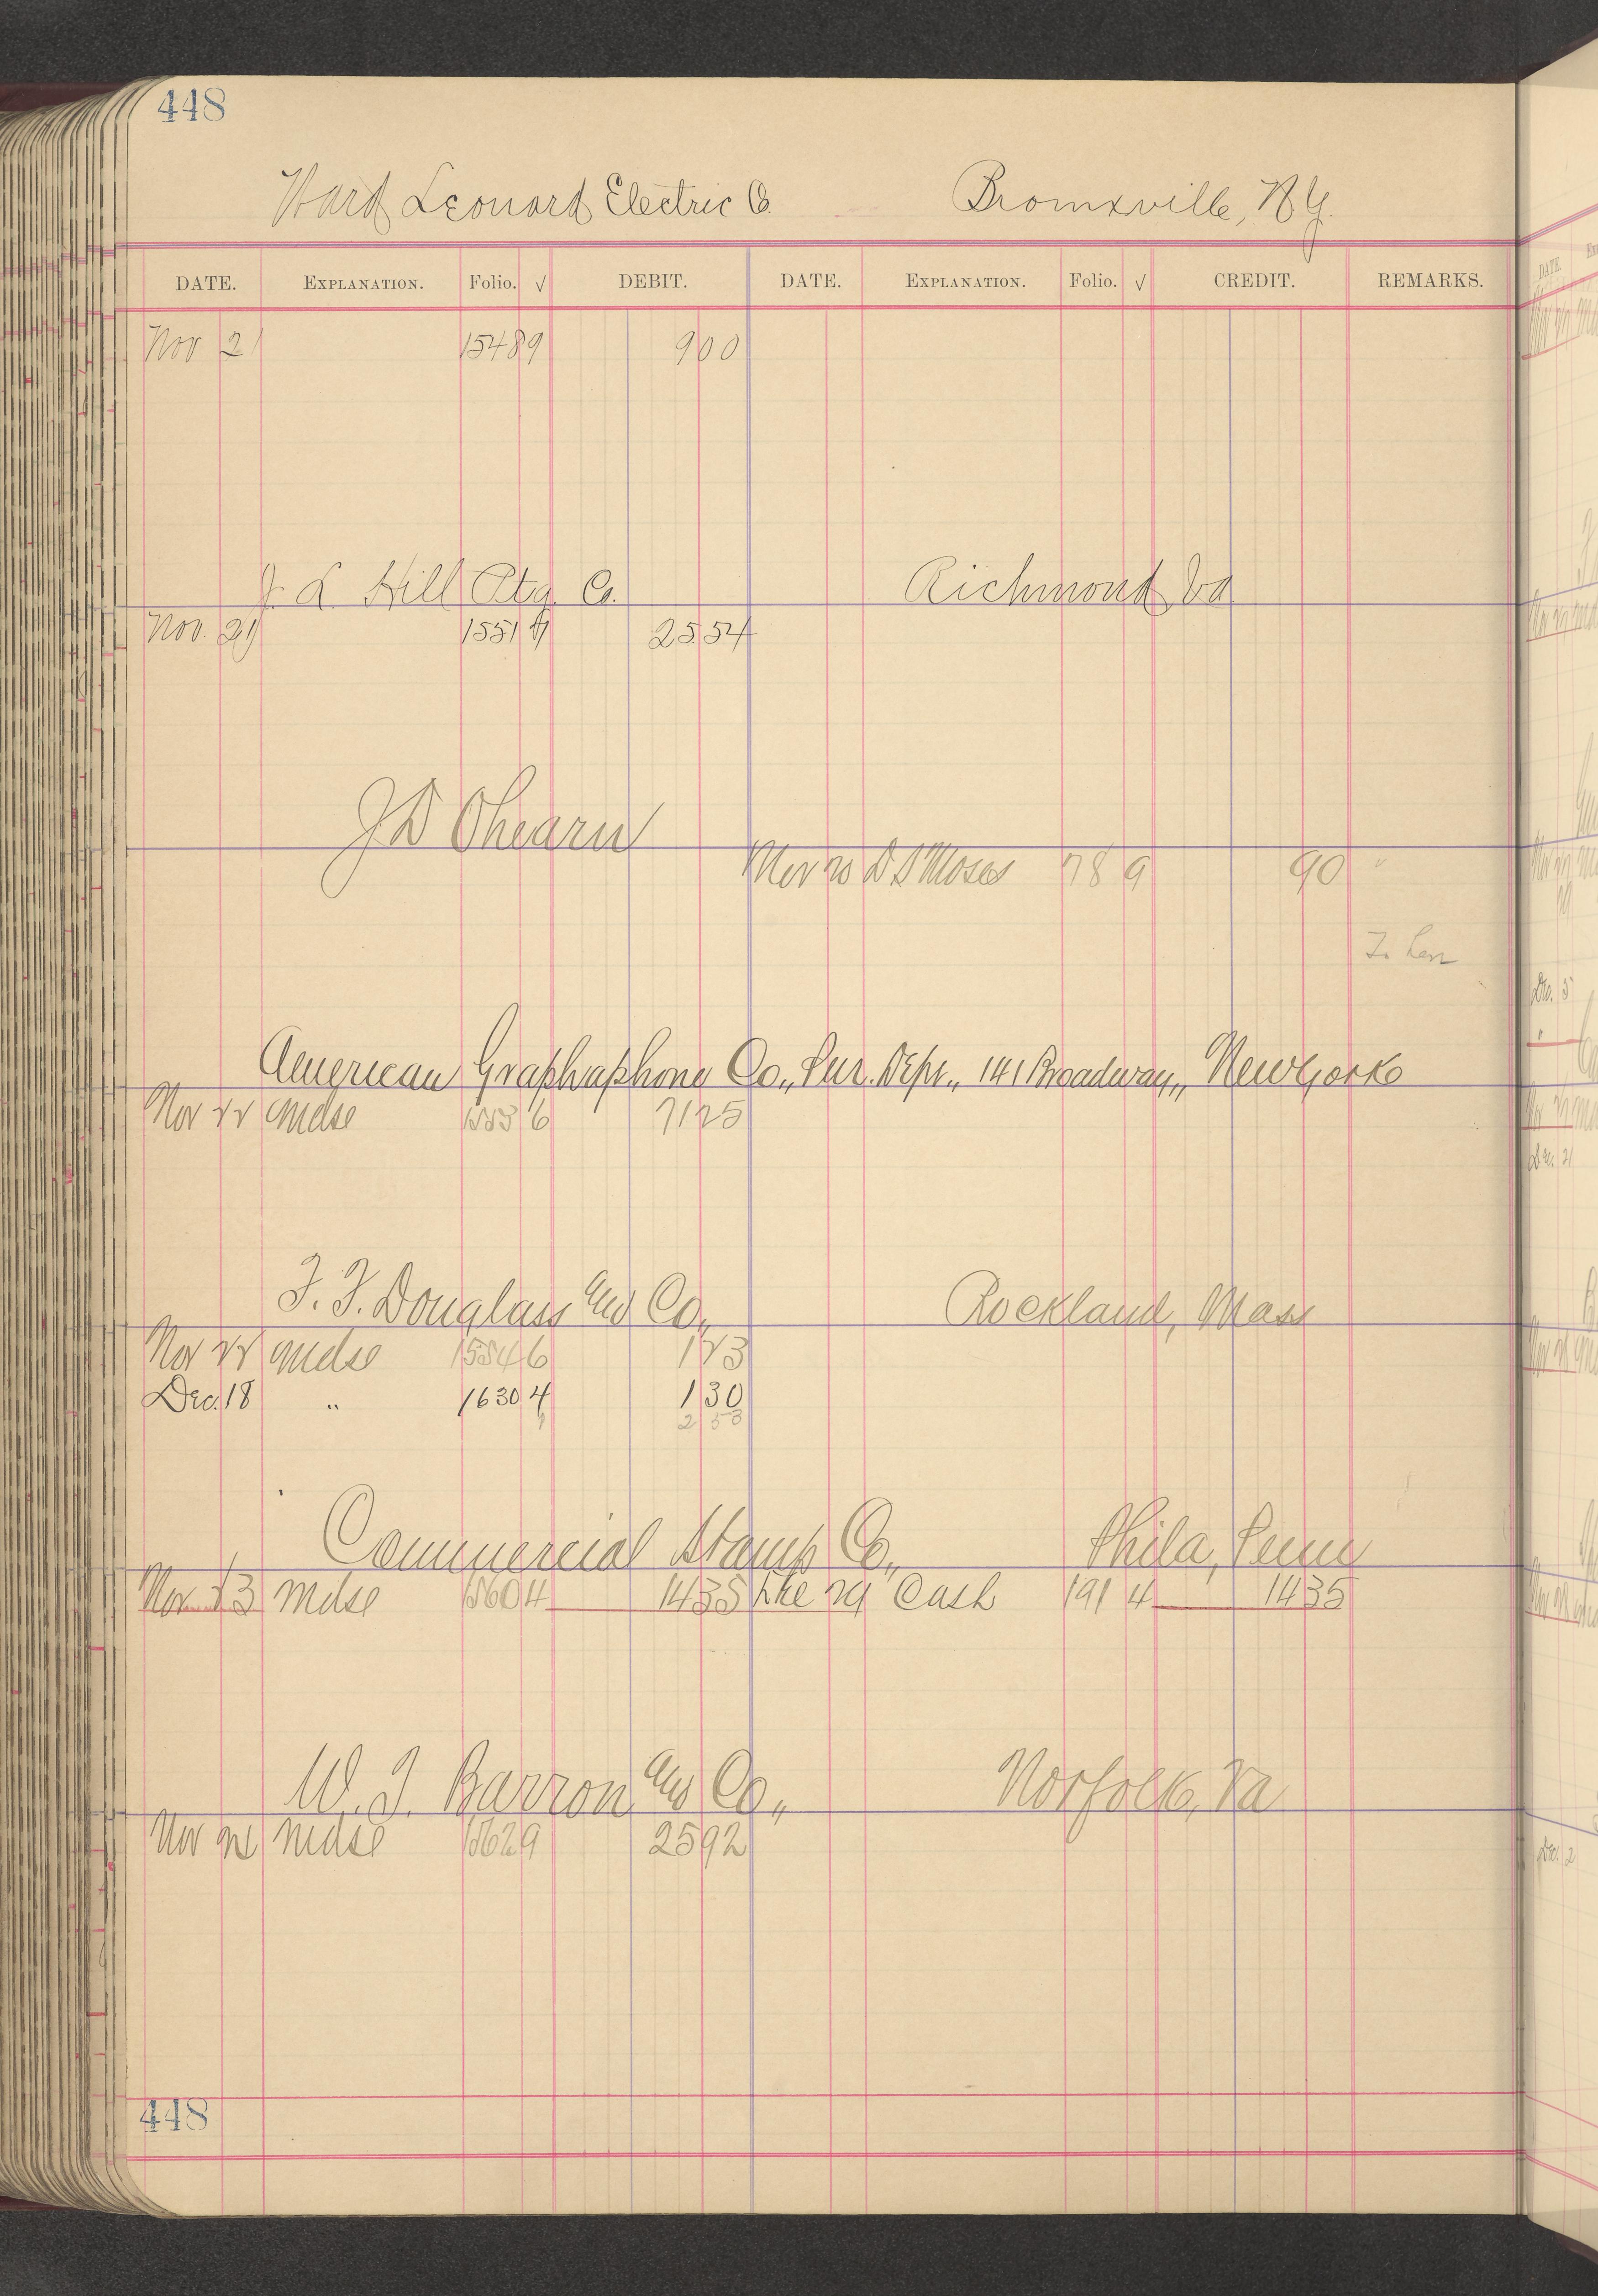 448
Ward Leonard Electric Co. Bronxville, N.Y.
DATE. EXPLANATION. Folio. √ DEBIT. DATE. EXPLANATION. Folio. √ CREDIT. REMARKS.
Nov 21 15489 900
J. L. Hill Ptg. Co. Richmond Va
Nov. 21 15517 2554
J D Ohearn
Nov 20 D S Moses 789 90
American Graphaphone Co., Pur. Dept., 141 Broadway, New York
Nov 22 Mdse 15536 7125
F. F. Douglass and Co., Rockland, Mass
Nov 22 Mdse 15546 123
Dec. 18 " 16304 130
253
Commercial Stamp Co., Phila, Penn
Nov 23 Mdse 15604 1435 Cash 1914 1435
W. J. Barron and Co., Norfolk, Va
Nov Mdse 15629 2592
448